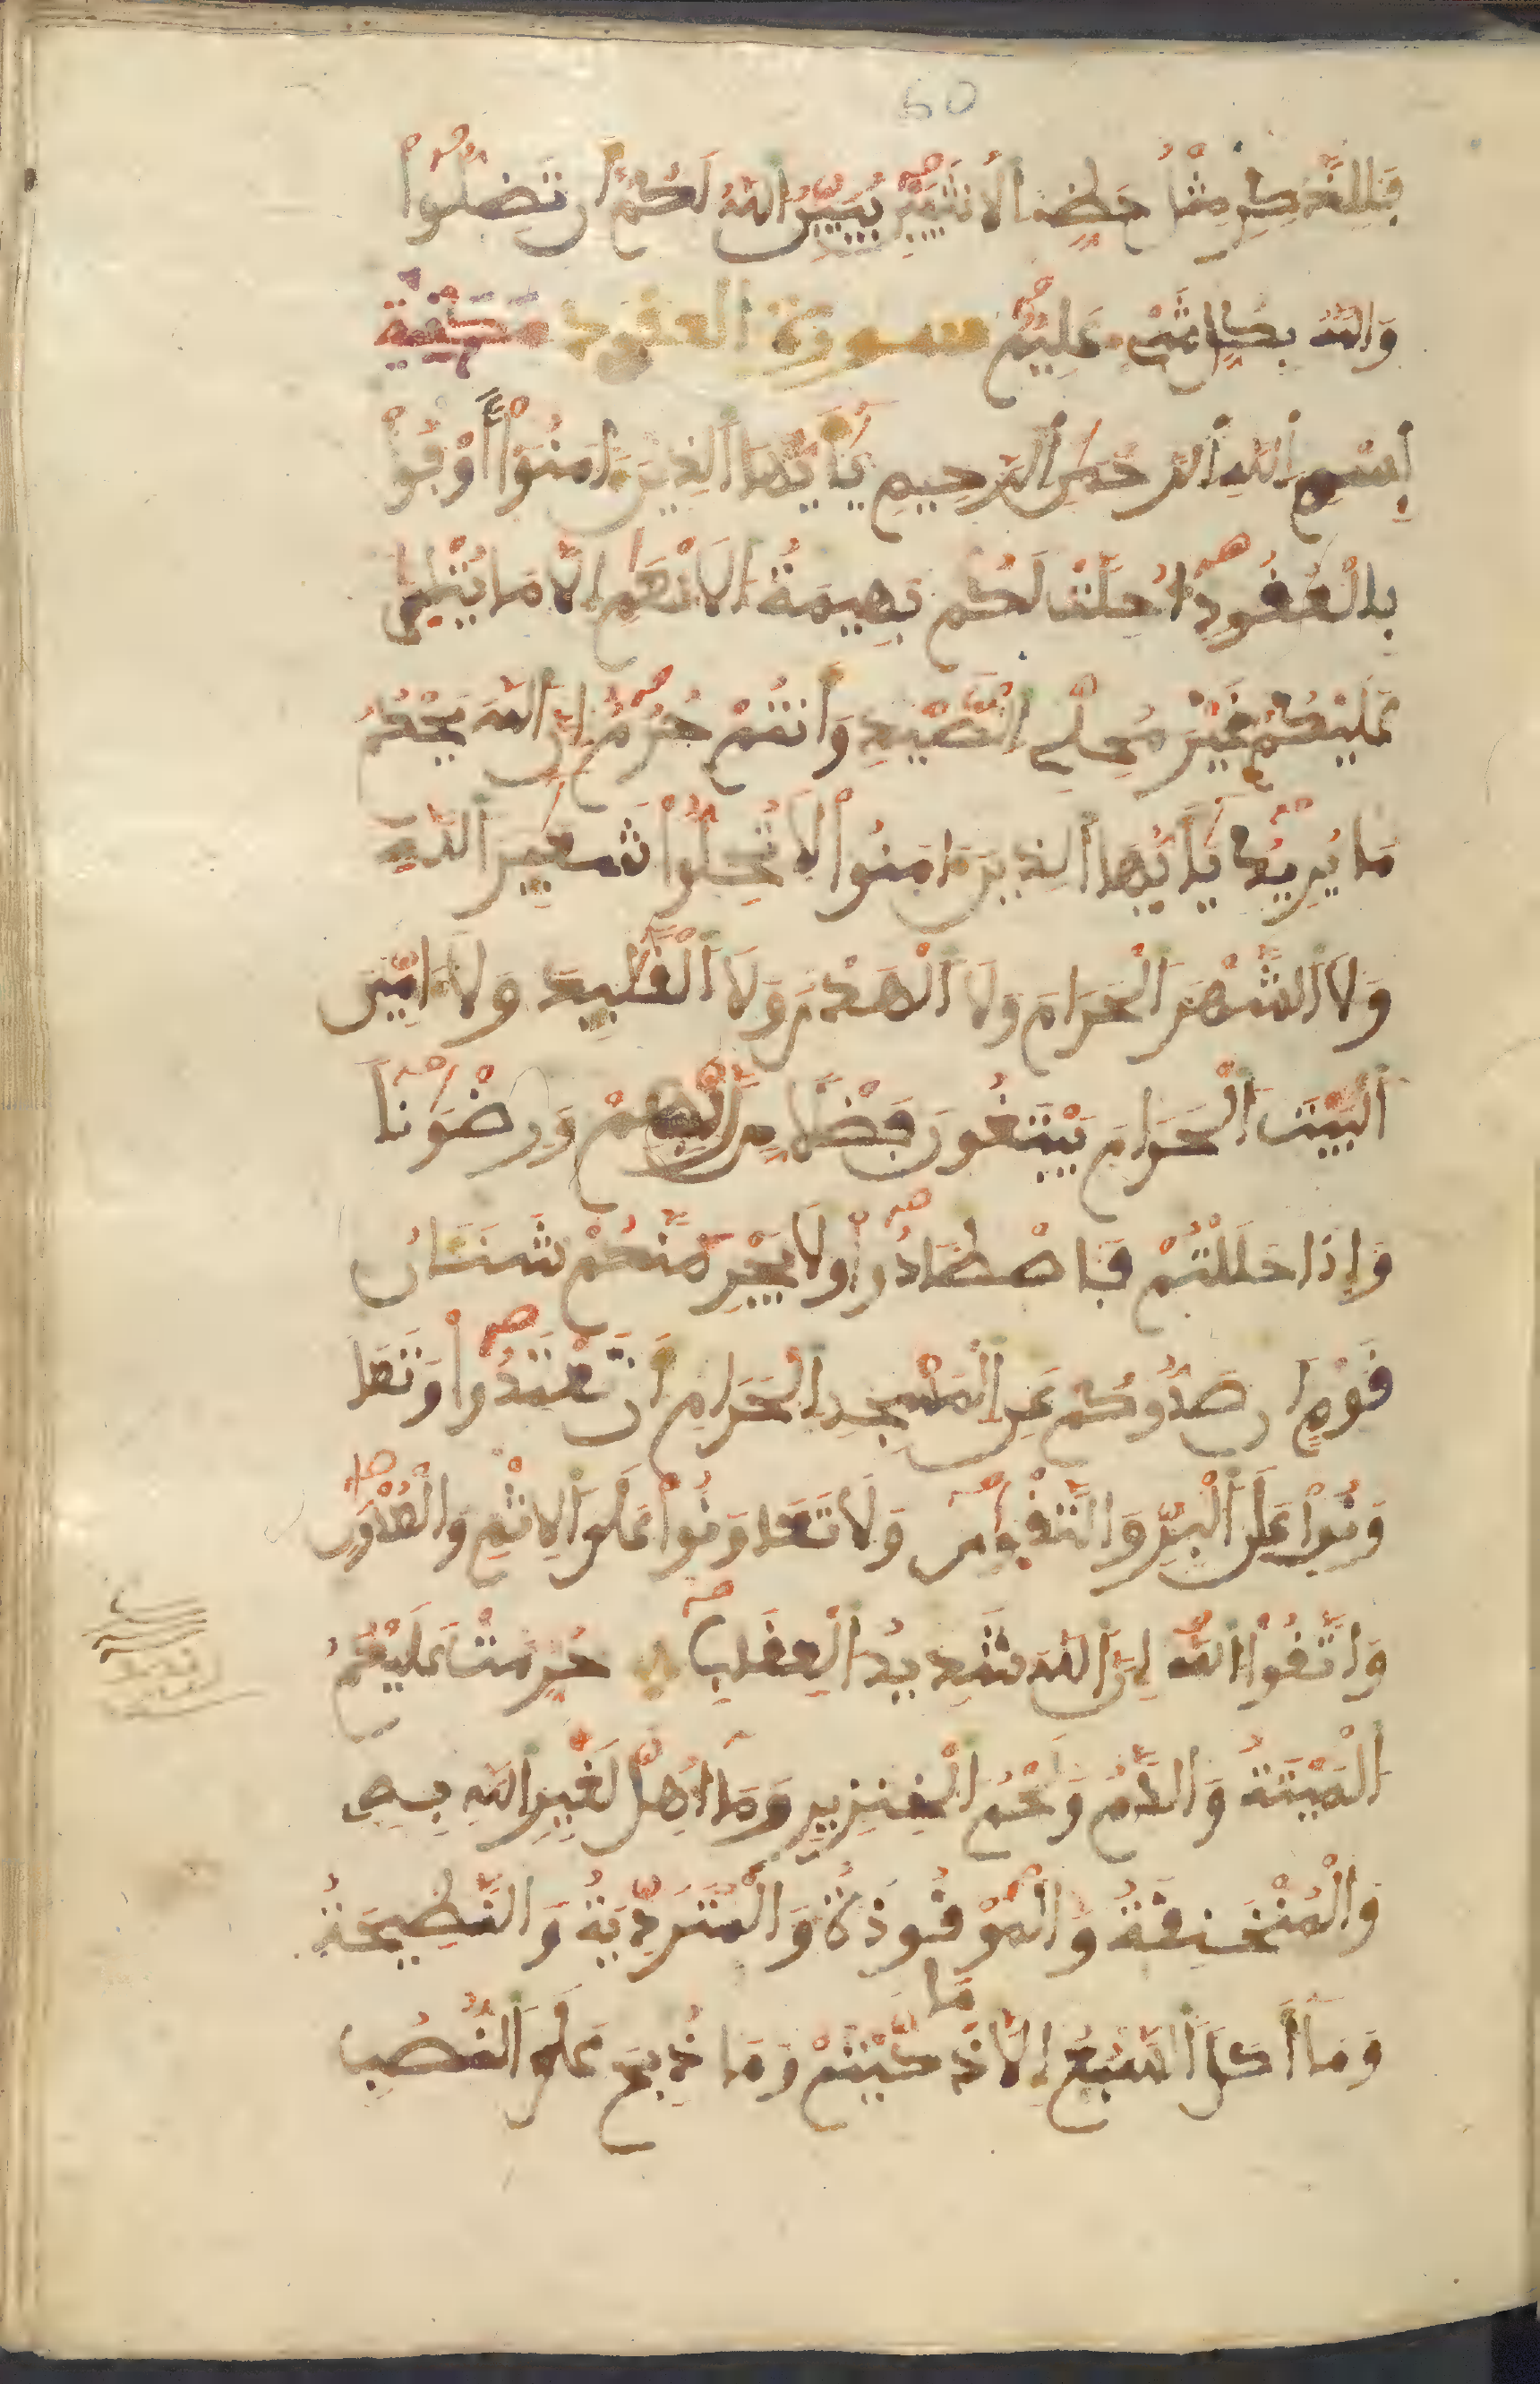 60
فَلِلذَّكَرِ مِثْلُ حَظِّ الْأُنثَيَيْنِ يُبَيِّنُ اللَّهُ لَكُمْ أَن تَضِلُّوا
وَاللَّهُ بِكُلِّ شَيْءٍ عَلِيمٌ سورة العقود مكية
بِسْمِ اللَّهِ الرَّحْمَٰنِ الرَّحِيمِ يَٰأَيُّهَا الَّذِينَ ءَامَنُوا أَوْفُوا
بِالْعُقُودِ أُحِلَّتْ لَكُم بَهِيمَةُ الْأَنْعَٰمِ إِلَّا مَا يُتْلَىٰ
عَلَيْكُمْ غَيْرَ مُحِلِّي الصَّيْدِ وَأَنتُمْ حُرُمٌ إِنَّ اللَّهَ يَحْكُمُ
مَا يُرِيدُ يَٰأَيُّهَا الَّذِينَ ءَامَنُوا لَا تُحِلُّوا شَعَٰئِرَ اللَّهِ
وَلَا الشَّهْرَ الْحَرَامَ وَلَا الْهَدْيَ وَلَا الْقَلَٰئِدَ وَلَا ءَامِّينَ
الْبَيْتَ الْحَرَامَ يَبْتَغُونَ فَضْلًا مِّن رَّبِّهِمْ وَرِضْوَٰنًا
وَإِذَا حَلَلْتُمْ فَاصْطَادُوا وَلَا يَجْرِمَنَّكُمْ شَنَـَٔانُ
قَوْمٍ أَن صَدُّوكُمْ عَنِ الْمَسْجِدِ الْحَرَامِ أَن تَعْتَدُوا وَتَعَا
وَنُوا عَلَى الْبِرِّ وَالتَّقْوَىٰ وَلَا تَعَاوَنُوا عَلَى الْإِثْمِ وَالْعُدْوَٰنِ
وَاتَّقُوا اللَّهَ إِنَّ اللَّهَ شَدِيدُ الْعِقَابِ حُرِّمَتْ عَلَيْكُمُ
الْمَيْتَةُ وَالدَّمُ وَلَحْمُ الْخِنزِيرِ وَمَا أُهِلَّ لِغَيْرِ اللَّهِ بِهِ
وَالْمُنْخَنِقَةُ وَالْمَوْقُوذَةُ وَالْمُتَرَدِّيَةُ وَالنَّطِيحَةُ
وَمَا أَكَلَ السَّبُعُ إِلَّا مَا ذَكَّيْتُمْ وَمَا ذُبِحَ عَلَى النُّصُبِ